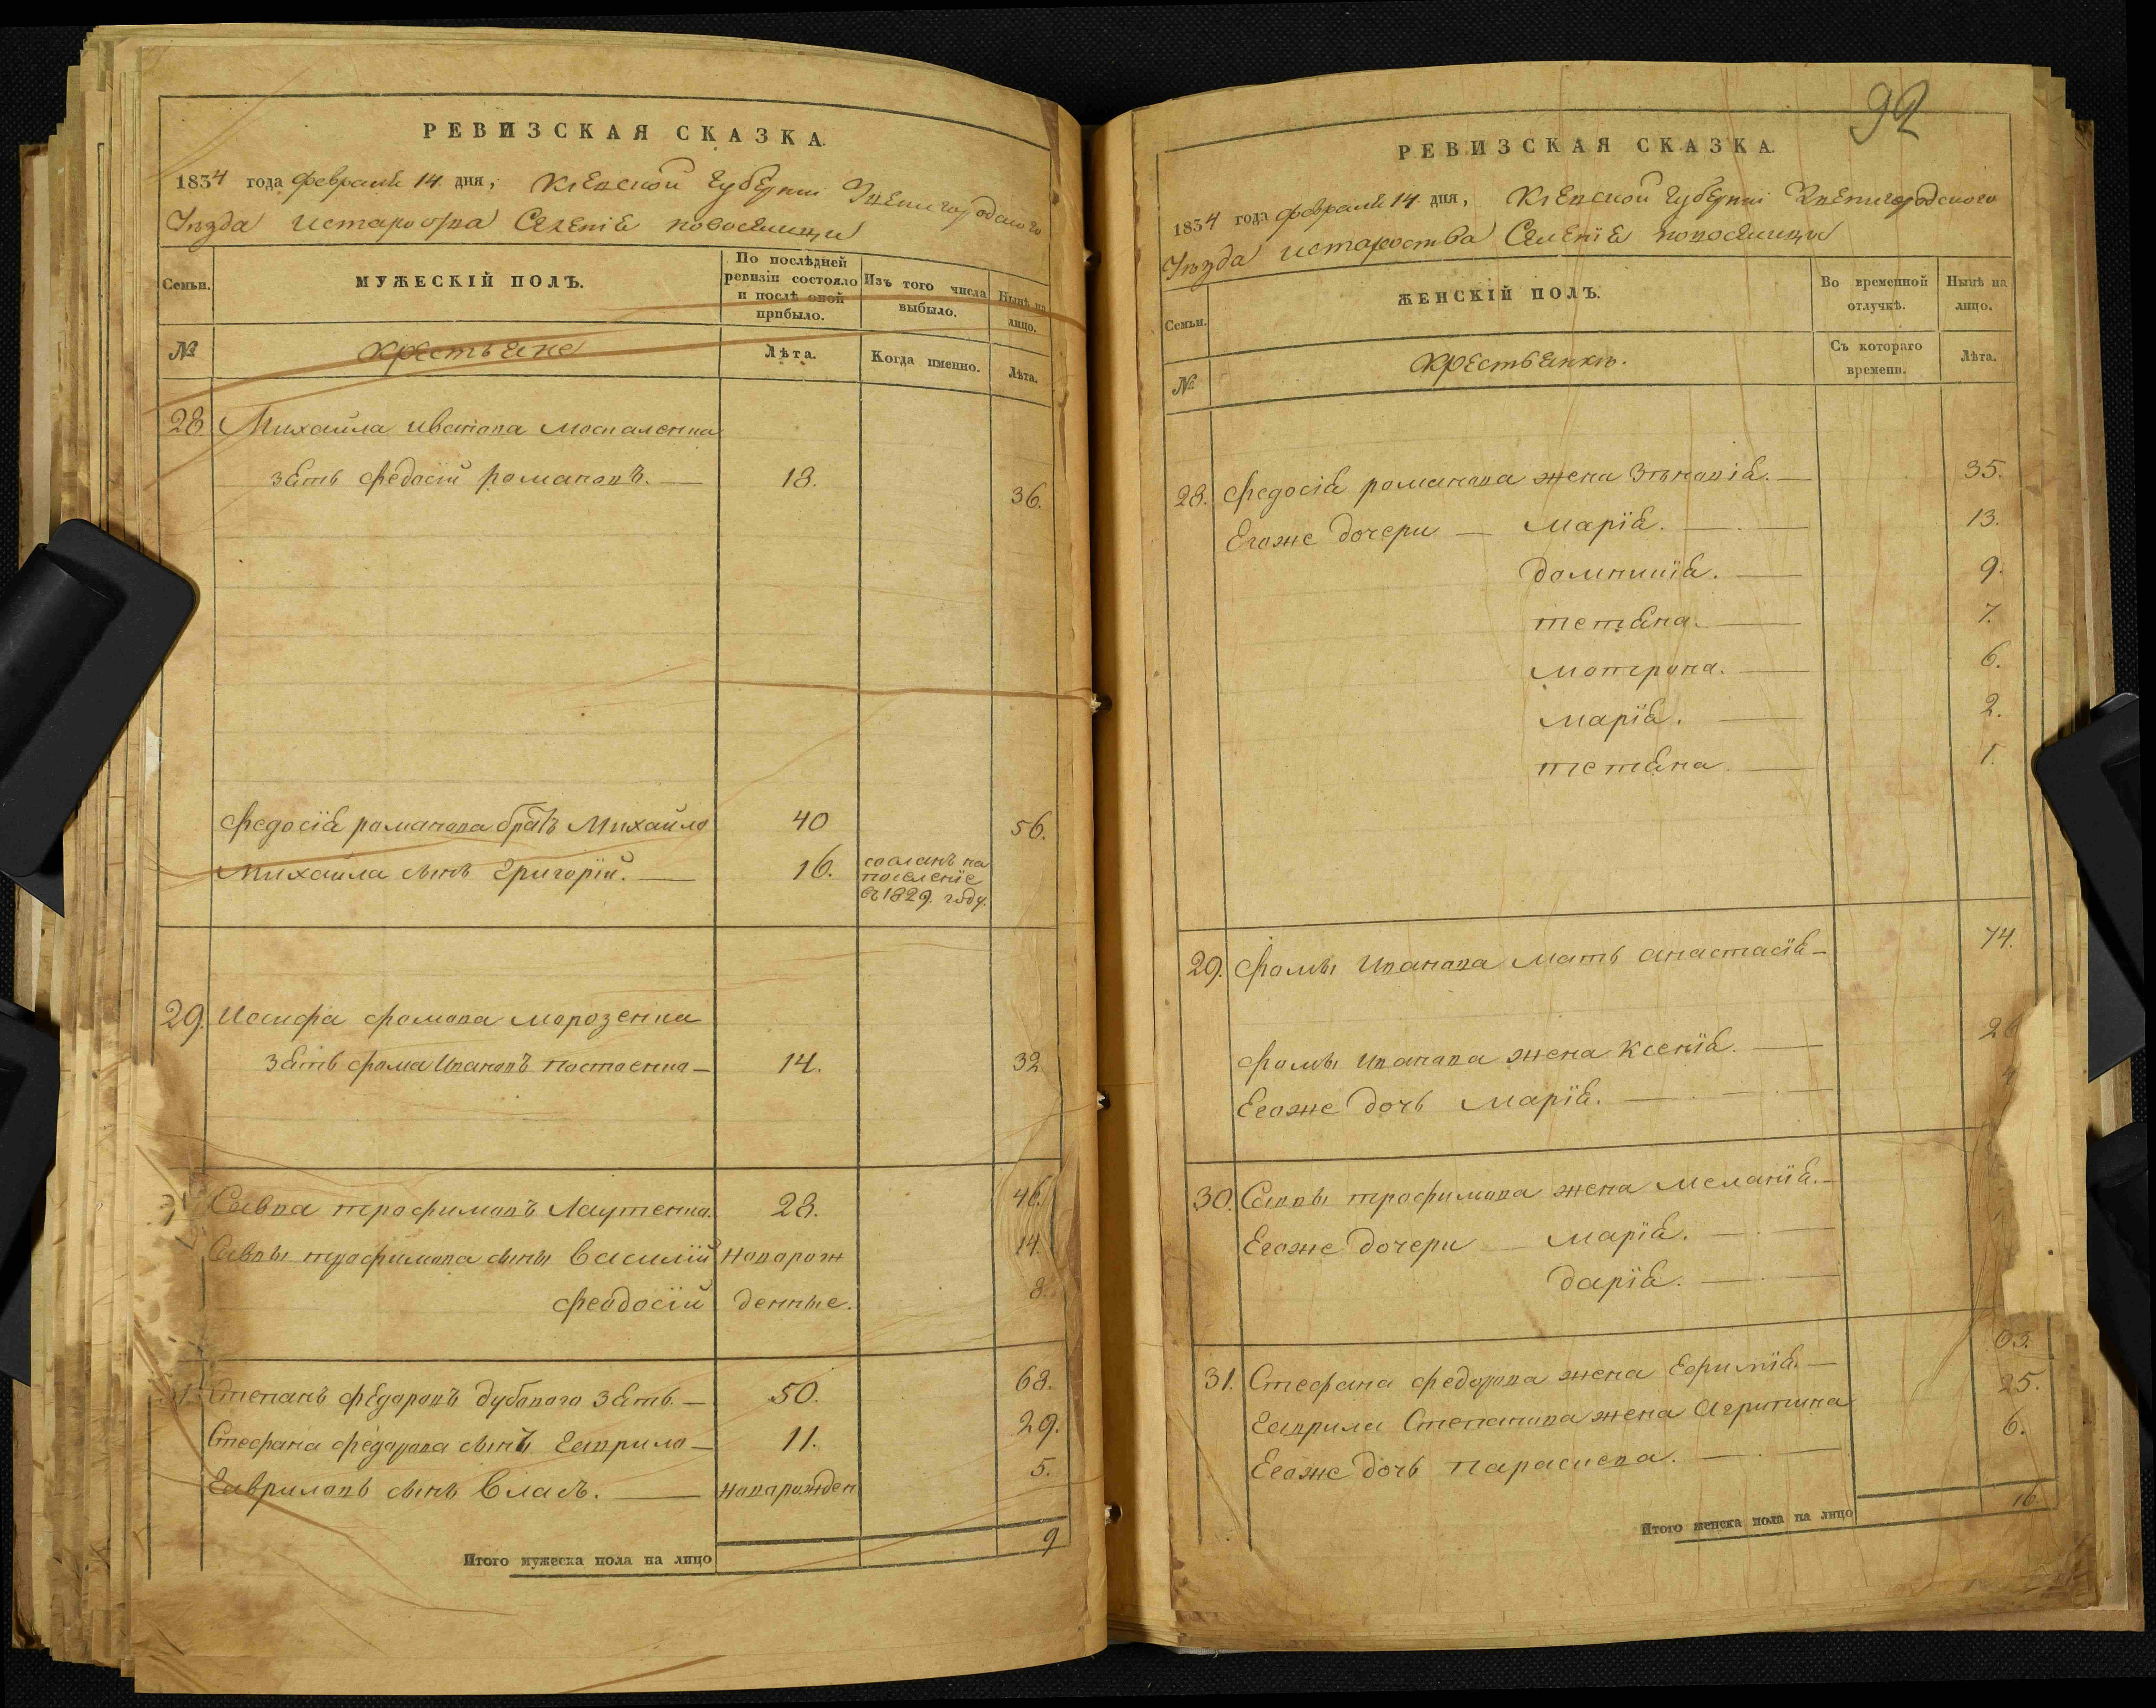 РЕВИЗСКАЯ СКАЗКА.
1834 года февраля 14 дня, Кіевской губерніи Звенигородского
Уѣзда и староства Селеніе новоселици
Семьи.
МУЖЕСКІЙ ПОЛЪ.
По послѣдней ревизіи состояло и послѣ оной прибыло.
Изъ того числа выбыло.
Нынѣ на лицо.
№
крестьяне
Лѣта.
Когда именно.
Лѣта.
28. Михайла иванова москаленка
зять федосій романовъ. — 18. 36.
федосія романова братъ Михайло 40 56.
Михайла сынъ григорій. — 16. сосланъ на
поселеніе
въ 1829. году.
29. Иосифа фомова морозенка
зять фома Ивановъ постоенко — 14. 32
Савва трофимовъ Лаутенко. 28. 46.
Саввы трофимова сыны василій новорож 14.
феодосій денные. 8.
Степанъ федоровъ дубового зять. — 50. 68.
Стефана федорова сынъ гаврило — 11. 29.
гавриловъ сынъ власъ. — новорожден 5.
Итого мужеска пола на лицо 9
92
РЕВИЗСКАЯ СКАЗКА.
1834 года февраля 14 дня, Кіевской губерніи Звенигородского
Уѣзда и староства Селеніе новоселици
Семьи.
ЖЕНСКІЙ ПОЛЪ.
Во временной отлучкѣ.
Нынѣ на лицо.
№
крестьянки.
Съ котораго времени.
Лѣта.
28. федосія романова жена Зѣновія. — 35.
Егоже дочери — марія. — 13.
домникія. — 9.
тетяна. — 7.
мотрона. — 6.
марія. — 2.
тетяна. — 1.
29. фомы Иванова мать анастасія — 74.
фомы иванова жена ксенія. — 2
Егоже дочь марія. —
30. Саввы трофимова жена меланія. —
Егоже дочери — марія. —
дарія. —
31. Стефана федорова жена Ефимія. —
гаврила Степанова жена Агрипина 25.
Егоже дочь парасиева. — 6.
Итого женска пола на лицо 16